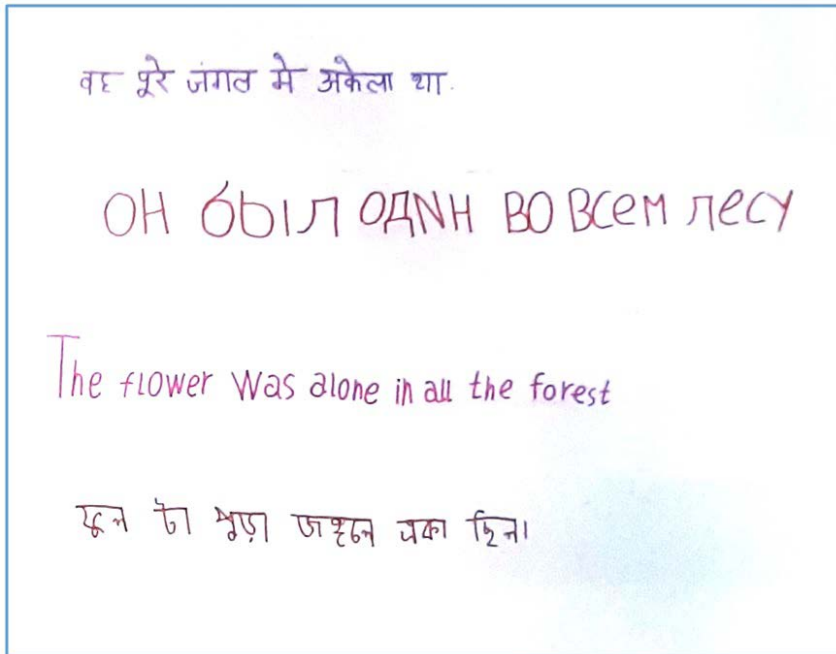 वह पूरे जंगल मे अकेला था.
ОН был ОДИН ВО ВСеМ лесу
The flower was alone in all the forest
ফুল টা পুড়া জঙ্গলে একা ছিল।